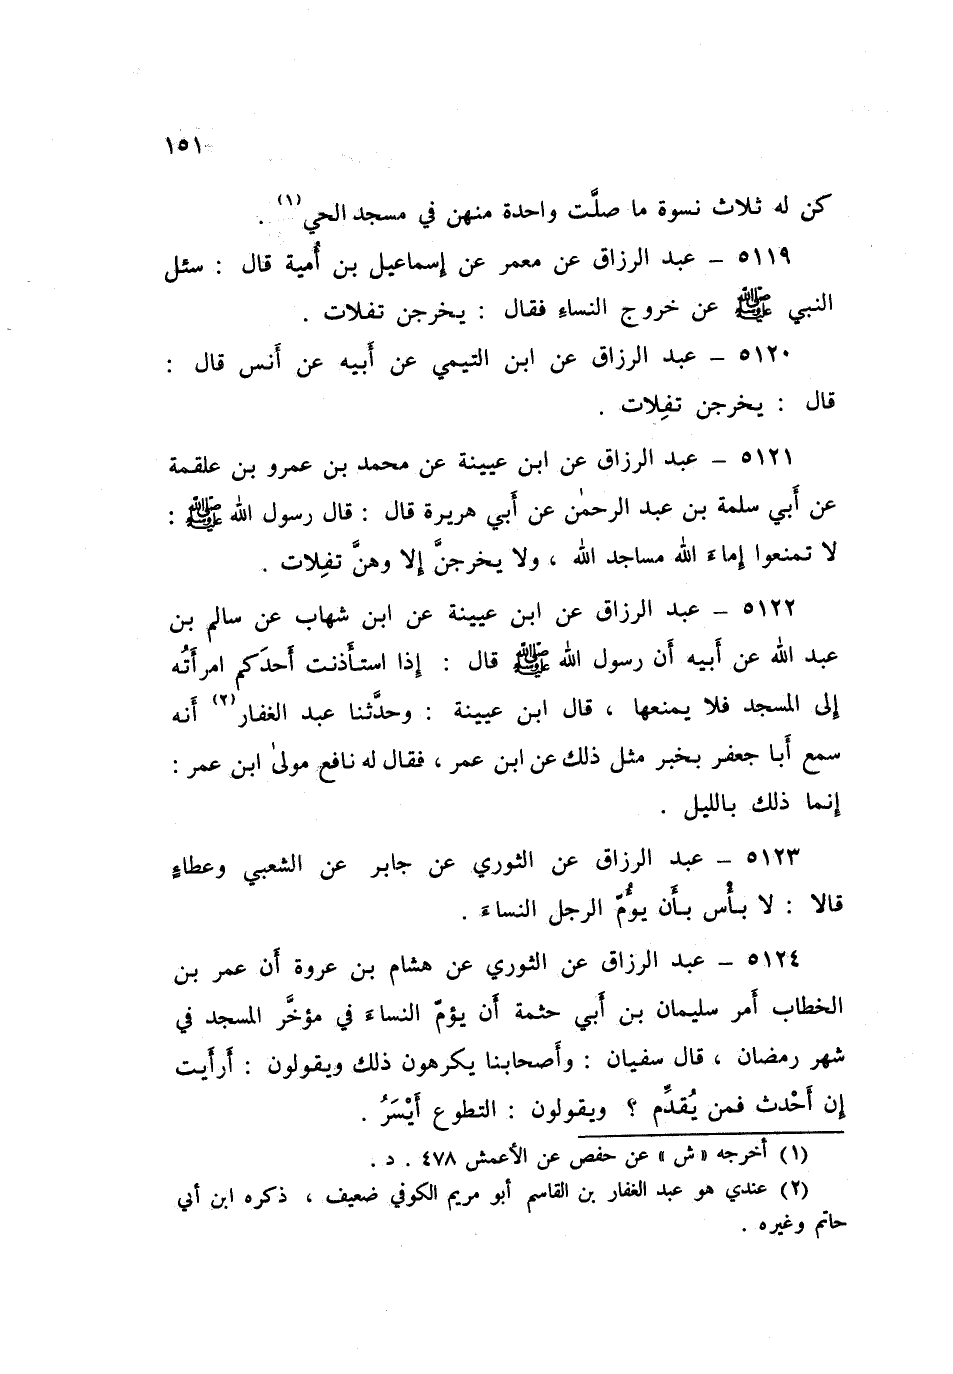 ١٥١
كن له ثلاث نسوة ما صلَّت واحدة منهن في مسجد الحي(١) .
٥١١٩ – عبد الرزاق عن معمر عن إسماعيل بن أُمية قال : سئل
النبي ﷺ عن خروج النساء فقال : يخرجن تفلات .
٥١٢٠ – عبد الرزاق عن ابن التيمي عن أَبيه عن أَنس قال :
قال : يخرجن تفِلات .
٥١٢١ – عبد الرزاق عن ابن عيينة عن محمد بن عمرو بن علقمة
عن أَبي سلمة بن عبد الرحمٰن عن أَبي هريرة قال : قال رسول الله ﷺ :
لا تمنعوا إماءَ الله مساجد الله ، ولا يخرجنَّ إلا وهنَّ تفِلات .
٥١٢٢ – عبد الرزاق عن ابن عيينة عن ابن شهاب عن سالم بن
عبد الله عن أَبيه أَن رسول الله ﷺ قال : إذا استأذنت أَحدَكم امرأَتُه
إلى المسجد فلا يمنعها ، قال ابن عيينة : وحدَّثنا عبد الغفار(٢) أَنه
سمع أَبا جعفر بخبر مثل ذلك عن ابن عمر ، فقال له نافع مولىٰ ابن عمر :
إنما ذلك بالليل .
٥١٢٣ – عبد الرزاق عن الثوري عن جابر عن الشعبي وعطاءٍ
قالا : لا بأْس بأَن يؤُمّ الرجل النساءَ .
٥١٢٤ – عبد الرزاق عن الثوري عن هشام بن عروة أَن عمر بن
الخطاب أَمر سليمان بن أَبي حثمة أَن يؤمّ النساءَ في مؤخَّر المسجد في
شهر رمضان ، قال سفيان : وأَصحابنا يكرهون ذلك ويقولون : أَرأَيت
إن أَحْدث فمن يُقدَّم ؟ ويقولون : التطوع أَيْسَرُ .
(١) أخرجه «ش» عن حفص عن الأعمش ٤٧٨ . د .
(٢) عندي هو عبد الغفار بن القاسم أبو مريم الكوفي ضعيف ، ذكره ابن أبي
حاتم وغيره .